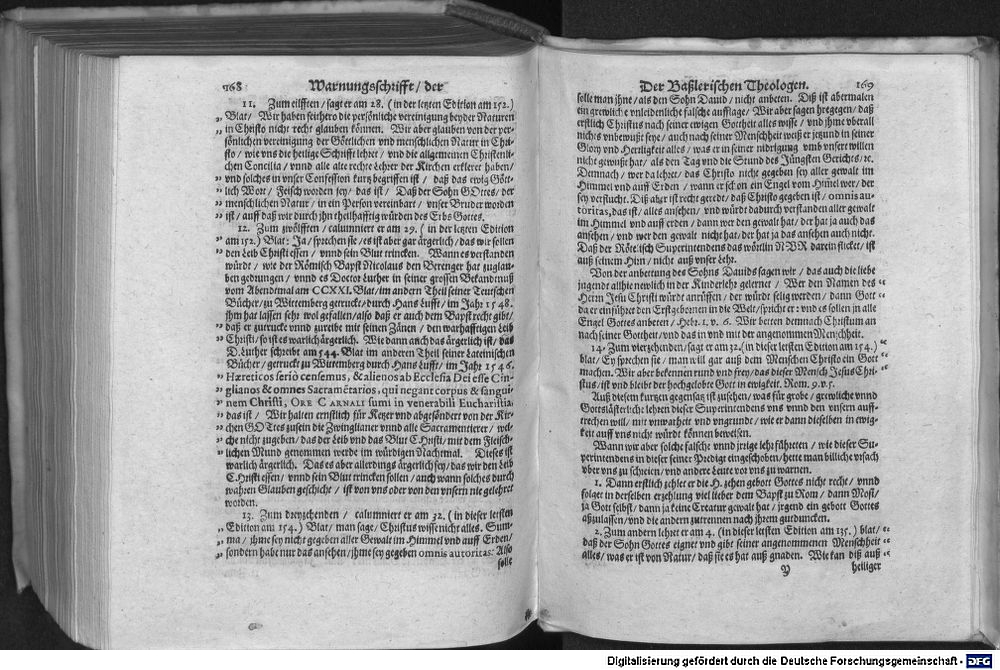 168 Warnungsschrifft / der
11. Zum eilfften / sagt er am 28. (in der letzten Edition am 152.)
Blat / Wir haben seithero die persönliche vereinigung beyder Naturen
in Christo nicht recht glauben können. Wir aber glauben von der per-
sönlichen vereinigung der Göttlichen vnd menschlichen Natur in Chri-
sto / wie vns die heilige Schrifft lehret / vnd die allgemeinen Christenli-
chen Concilia / vnnd alle alte rechte Lehrer der Kirchen erkleret haben /
vnd solches in vnser Confession kurtz begriffen ist / daß das ewig Gött-
lich Wort / Fleisch worden sey / das ist / Daß der Sohn GOttes / der
menschlichen Natur / in ein Person vereinbart / vnser Bruder worden
ist / auff daß wir durch jhn theilhafftig würden des Erbs Gottes.
12. Zum zwölfften / calumniert er am 29. (in der letzten Edition
am 152.) Blat: Ja / sprechen sie / es ist aber gar ärgerlich / das wir sollen
den Leib Christi essen / vnnd sein Blut trincken. Wann es verstanden
würdt / wie der Römisch Bapst Nicolaus den Berenger hat zuglau-
ben gedrungen / vnnd es Doctor Luther in seiner grossen Bekandtnuß
vom Abendtmal am CCXXI. Blat / im andern Theil seiner Teutschen
Bücher / zu Wittemberg getruckt / durch Hans Lufft / im Jahr 1548.
jhm hat lassen sehr wol gefallen / also daß er auch dem Bapst recht gibt /
daß er zutrucke vnnd zureibe mit seinen Zänen / den warhafftigen Leib
Christi / so ist es warlich ärgerlich. Wie dann auch das ärgerlich ist / das
D. Luther schreibt am 544. Blat im anderen Theil seiner Lateinischen
Bücher / getruckt zu Wittemberg durch Hans Lufft / im Jahr 1546.
Hæreticos seriò censemus, & alienos ab Ecclesia Dei esse Cin-
glianos & omnes Sacramētarios, qui negant corpus & sangui-
nem Christi, ORE CARNALI sumi in venerabili Eucharistia,
das ist / Wir halten ernstlich für Ketzer vnd abgesöndert von der Kir-
chen GOttes zusein die Zwinglianer vnnd alle Sacramentierer / wel-
che nicht zugeben / das der Leib vnd das Blut Christi / mit dem Fleisch-
lichen Mund genommen werde im würdigen Nachtmal. Dieses ist
warlich ärgerlich. Das es aber allerdings ärgerlich sey / das wir den Leib
Christi essen / vnnd sein Blut trincken sollen / auch wann solches durch
wahren Glauben geschicht / ist von vns oder von den vnsern nie gelehret
worden.
13. Zum dreyzehenden / calumniert er am 32. (in dieser letsten
Edition am 154.) Blat / man sage / Christus wisse nicht alles. Sum-
ma / jhme sey nicht gegeben aller Gewalt im Himmel vnd auff Erden /
sondern habe nur das ansehen / jhme sey gegeben omnis autoritas: Also
solle
Der Baßlerischen Theologen. 169
solle man jhne / als den Sohn Dauid / nicht anbeten. Diß ist abermalen
ein grewliche vnleidenliche falsche aufflage / Wir aber sagen hregegen / daß
erstlich Christus nach seiner ewigen Gottheit alles wisse / vnd jhme vberall
nichts vnbewußt seye / auch nach seiner Menschheit weißt er jetzund in seiner
Glory vnd Herrligkeit alles / was er in seiner nidrigung vmb vnsert willen
nicht gewußt hat / als den Tag vnd die Stund des Jüngsten Gerichts / etc.
Demnach / wer da lehret / das Christo nicht gegeben sey aller gewalt im
Himmel vnd auff Erden / wann er schon ein Engel vom Himmel wer / der
sey verflucht. Diß aber ist recht geredt / daß Christo gegeben ist / omnis au-
toritas, das ist / alles ansehen / vnd würdt dadurch verstanden aller gewalt
im Himmel vnd auff erden / dann wer den gewalt hat / der hat ja auch das
ansehen / vnd wer den gewalt nicht hat / der hat ja das ansehen auch nicht.
Daß der Rötelisch Superintendens das wörtlin NVR darein flicket / ist
auß seinem Hirn / nicht auß vnser Lehr.
Von der anbettung des Sohns Dauids sagen wir / das auch die liebe
jugendt allhie newlich in der Kinderlehr gelernet / Wer den Namen des
Herrn Jesu Christi würdt anrüffen / der würdt selig werden / dann Gott
da er einführet den Erstgebornen in die Welt / spricht er: vnd es sollen jn alle
Engel Gottes anbeten / Hebr. 1. v. 6. Wir betten demnach Christum an
nach seiner Gottheit / vnd das in vnd mit der angenommen Menschheit.
14. Zum vierzehenden / sagt er am 32. (in dieser letsten Edition am 154.)
blat / Ey sprechen sie / man will gar auß dem Menschen Christo ein Gott
machen. Wir aber bekennen rund vnd frey / das dieser Mensch Jesus Chri-
stus / ist vnd bleibt der hochgelobte Gott in ewigkeit. Rom. 9. v. 5.
Auß diesem kurtzen gegensatz ist zusehen / was für grobe / grewliche vnnd
Gottslästerliche lehren dieser Superintendens vns vnnd den vnsern auff-
trechen will / mit vnwarheit vnd vngrundt / wie er dann dieselben in ewig-
keit auff vns nicht würdt können beweisen.
Wann wir aber solche falsche vnnd jrrige lehr führeten / wie dieser Su-
perintendens in dieser seiner Predigt eingeschoben / hette man billiche vrsach
vber vns zu schreien / vnd andere Leute vor vns zu warnen.
1. Dann erstlich zehlet er die H. zehen gebott Gottes nicht recht / vnnd
folget in derselben erzehlung viel lieber dem Bapst zu Rom / dann Mosi /
ja Gott selbst / dann ja keine Creatur gewalt hat / jrgend ein gebott Gottes
aßzulassen / vnd die andern zutrennen nach jhrem gutduncken.
2. Zum andern lehrt er am 4. (in der letsten Edition am 135.) blat /
daß der Sohn Gottes eignet vnd gibt seiner angenommenen Menschheit
alles / was er ist von Natur / daß sie es hat auß gnaden. Wie kan diß auß
Y heiliger
Digitalisierung gefördert durch die Deutsche Forschungsgemeinschaft - DFG